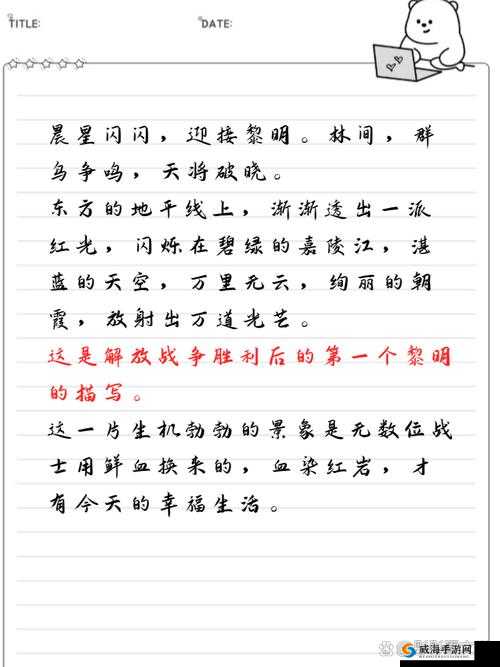 TITLE:
DATE:
晨星闪闪，迎接黎明。林间，群
鸟争鸣，天将破晓。
东方的地平线上，渐渐透出一派
红光，闪烁在碧绿的嘉陵江，湛
蓝的天空，万里无云，绚丽的朝
霞，放射出万道光芒。
这是解放战争胜利后的第一个黎明
的描写。
这一片生机勃勃的景象是无数位战
士用鲜血换来的，血染红岩，才
有今天的幸福生活。
威海手游网